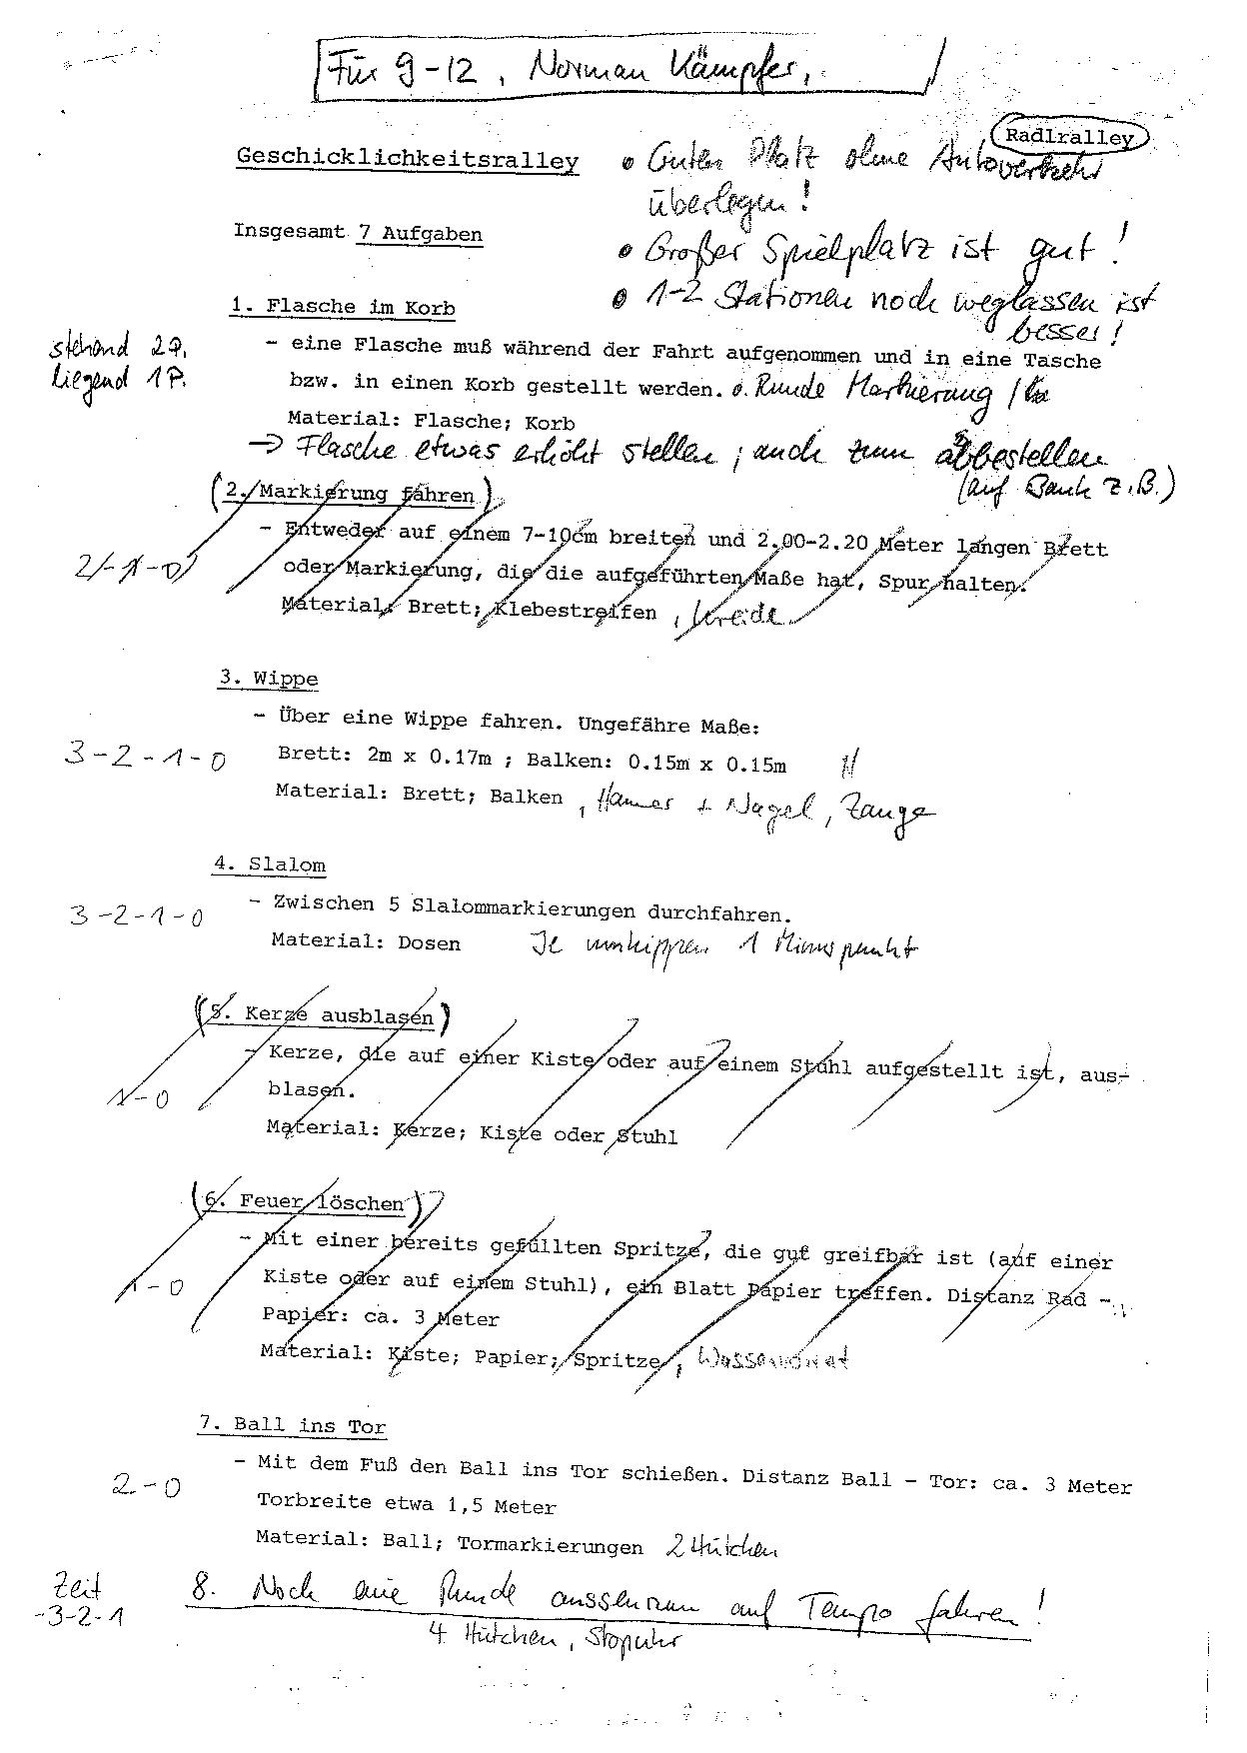 Für 9-12, Norman Kämpfer,
Radlralley
Geschicklichkeitsralley
• Guten Platz ohne Autoverkehr
überlegen!
Insgesamt 7 Aufgaben
• Großer Spielplatz ist gut!
• 1-2 Stationen noch weglassen ist
besser!
1. Flasche im Korb
stehend 2P.
liegend 1P.
- eine Flasche muß während der Fahrt aufgenommen und in eine Tasche
bzw. in einen Korb gestellt werden. o. Runde Markierung
Material: Flasche; Korb
→ Flasche etwas erhöht stellen; auch zum abbestellen
(auf Bank z.B.)
(2. Markierung fahren)
2-1-0
- Entweder auf einem 7-10cm breiten und 2.00-2.20 Meter langen Brett
oder Markierung, die die aufgeführten Maße hat, Spur halten.
Material: Brett; Klebestreifen, Kreide
3. Wippe
- Über eine Wippe fahren. Ungefähre Maße:
3-2-1-0
Brett: 2m x 0.17m ; Balken: 0.15m x 0.15m
Material: Brett; Balken, Hamer + Nagel, Zange
4. Slalom
3-2-1-0
- Zwischen 5 Slalommarkierungen durchfahren.
Material: Dosen Je umkippen 1 Minuspunkt
(5. Kerze ausblasen)
- Kerze, die auf einer Kiste oder auf einem Stuhl aufgestellt ist, aus-
1-0
blasen.
Material: Kerze; Kiste oder Stuhl
(6. Feuer löschen)
- Mit einer bereits gefüllten Spritze, die gut greifbar ist (auf einer
1-0
Kiste oder auf einem Stuhl), ein Blatt Papier treffen. Distanz Rad -
Papier: ca. 3 Meter
Material: Kiste; Papier; Spritze,
7. Ball ins Tor
2-0
- Mit dem Fuß den Ball ins Tor schießen. Distanz Ball - Tor: ca. 3 Meter
Torbreite etwa 1,5 Meter
Material: Ball; Tormarkierungen 2 Hütchen
Zeit
-3-2-1
8. Noch eine Runde aussenrum auf Tempo fahren!
4 Hütchen, Stopuhr